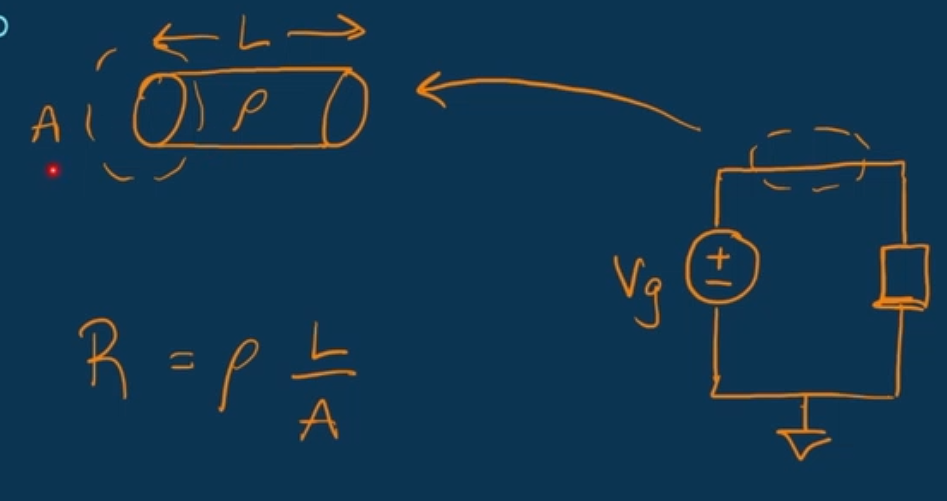 ← L →
A
ρ
Vg
+
−
R = ρ L/A